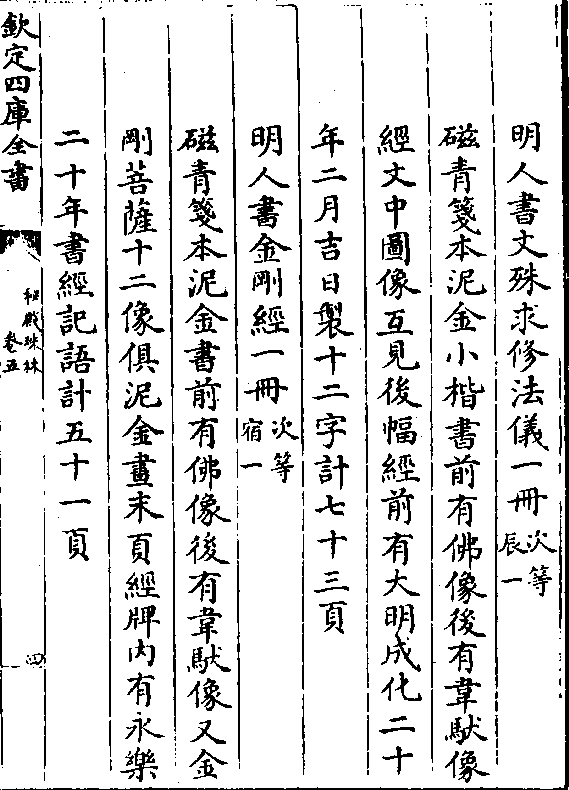 明人書文殊求修法儀一冊次等辰一
磁青箋本泥金小楷書前有佛像後有韋馱像
經文中圖像互見後幅經前有大明成化二十
年二月吉日製十二字計七十三頁
明人書金剛經一冊次等宿一
磁青箋本泥金書前有佛像後有韋馱像又金
剛菩薩十二像俱泥金畫末頁經牌內有永樂
二十年書經記語計五十一頁
欽定四庫全書
秘殿珠林
卷五
四